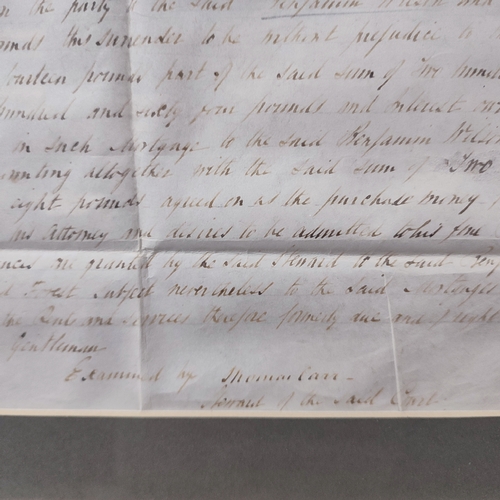 the party to the said Benjamin Wilson and
this surrender to be without prejudice to
fourteen pounds part of the said sum of Two hundred
hundred and sixty four pounds and Interest
in such Mortgage to the said Benjamin Wilson
altogether with the said sum of Two
eight pounds agreed on as the purchase money
his Attorney and desires to be admitted to his fine
granted by the said Steward to the said
subject nevertheless to the said Mortgage
the Rents and services therefore formerly due and of right
Gentleman
Examined by Thomas Carr
Steward of the said Court